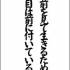 前を見て生きるため
目は前に付いている